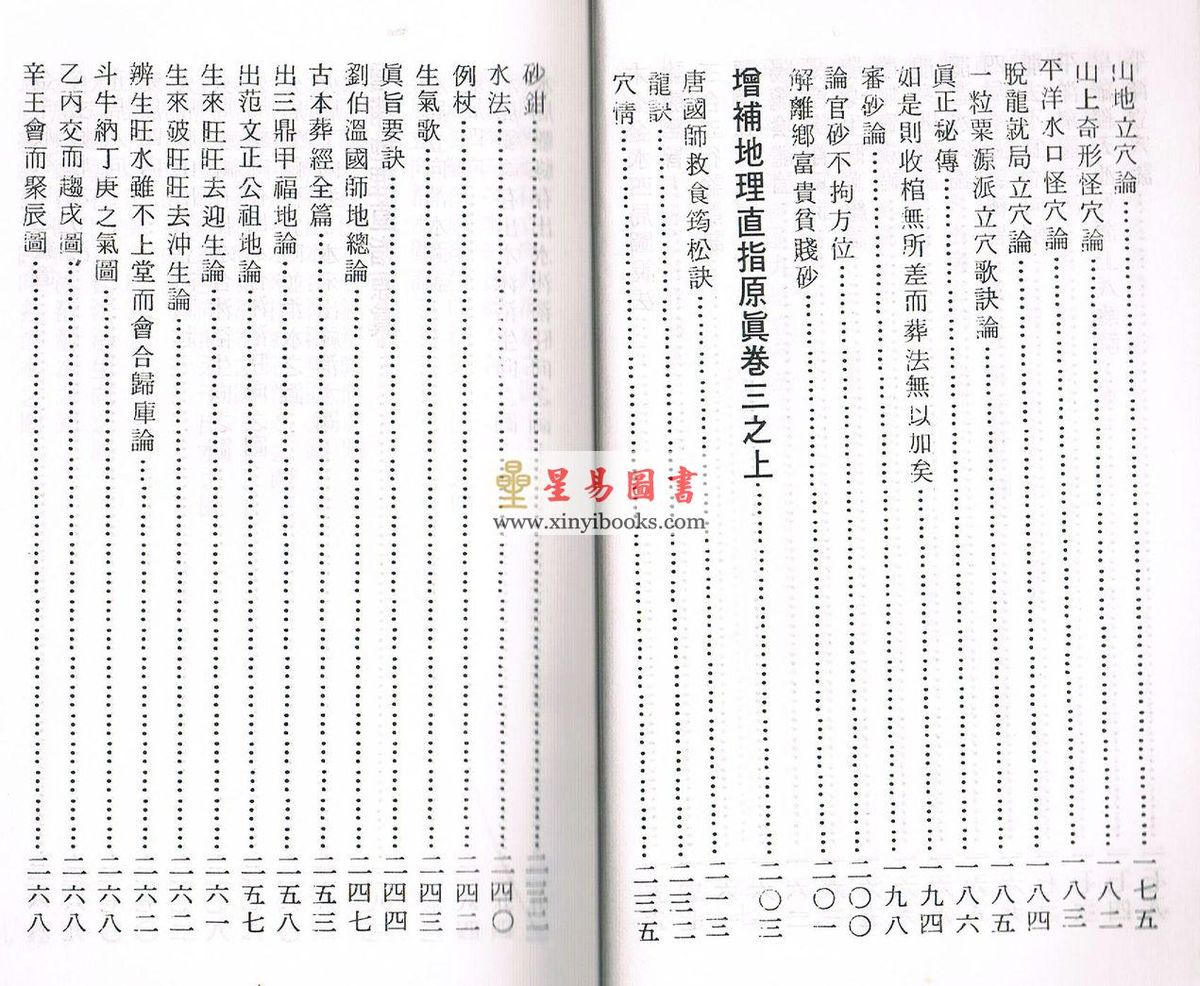 山地立穴論……一七五
山上奇形怪穴論……一八二
平洋水口怪穴論……一八三
脫龍就局立穴論……一八四
一粒粟源派立穴歌訣論……一八五
眞正秘傳……一八六
如是則收棺無所差而葬法無以加矣……一九四
審砂論……一九八
論官砂不拘方位……二〇〇
解離鄉富貴貧賤砂……二〇一
增補地理直指原眞卷三之上……二〇三
唐國師救食筠松訣……二一三
龍訣……二三二
穴情……二三五
砂鉗……
水法……二四〇
例杖……二四二
生氣歌……二四三
眞旨要訣……二四四
劉伯溫國師地總論……二四七
古本葬經全篇……二五三
出三鼎甲福地論……二五八
出范文正公祖地論……二五七
生來旺旺去迎生論……二六一
生來破旺旺去沖生論……二六二
辨生旺水雖不上堂而會合歸庫論……二六二
斗牛納丁庚之氣圖……二六八
乙丙交而趨戌圖……二六八
辛王會而聚辰圖……二六八
星易圖書
www.xinyibooks.com